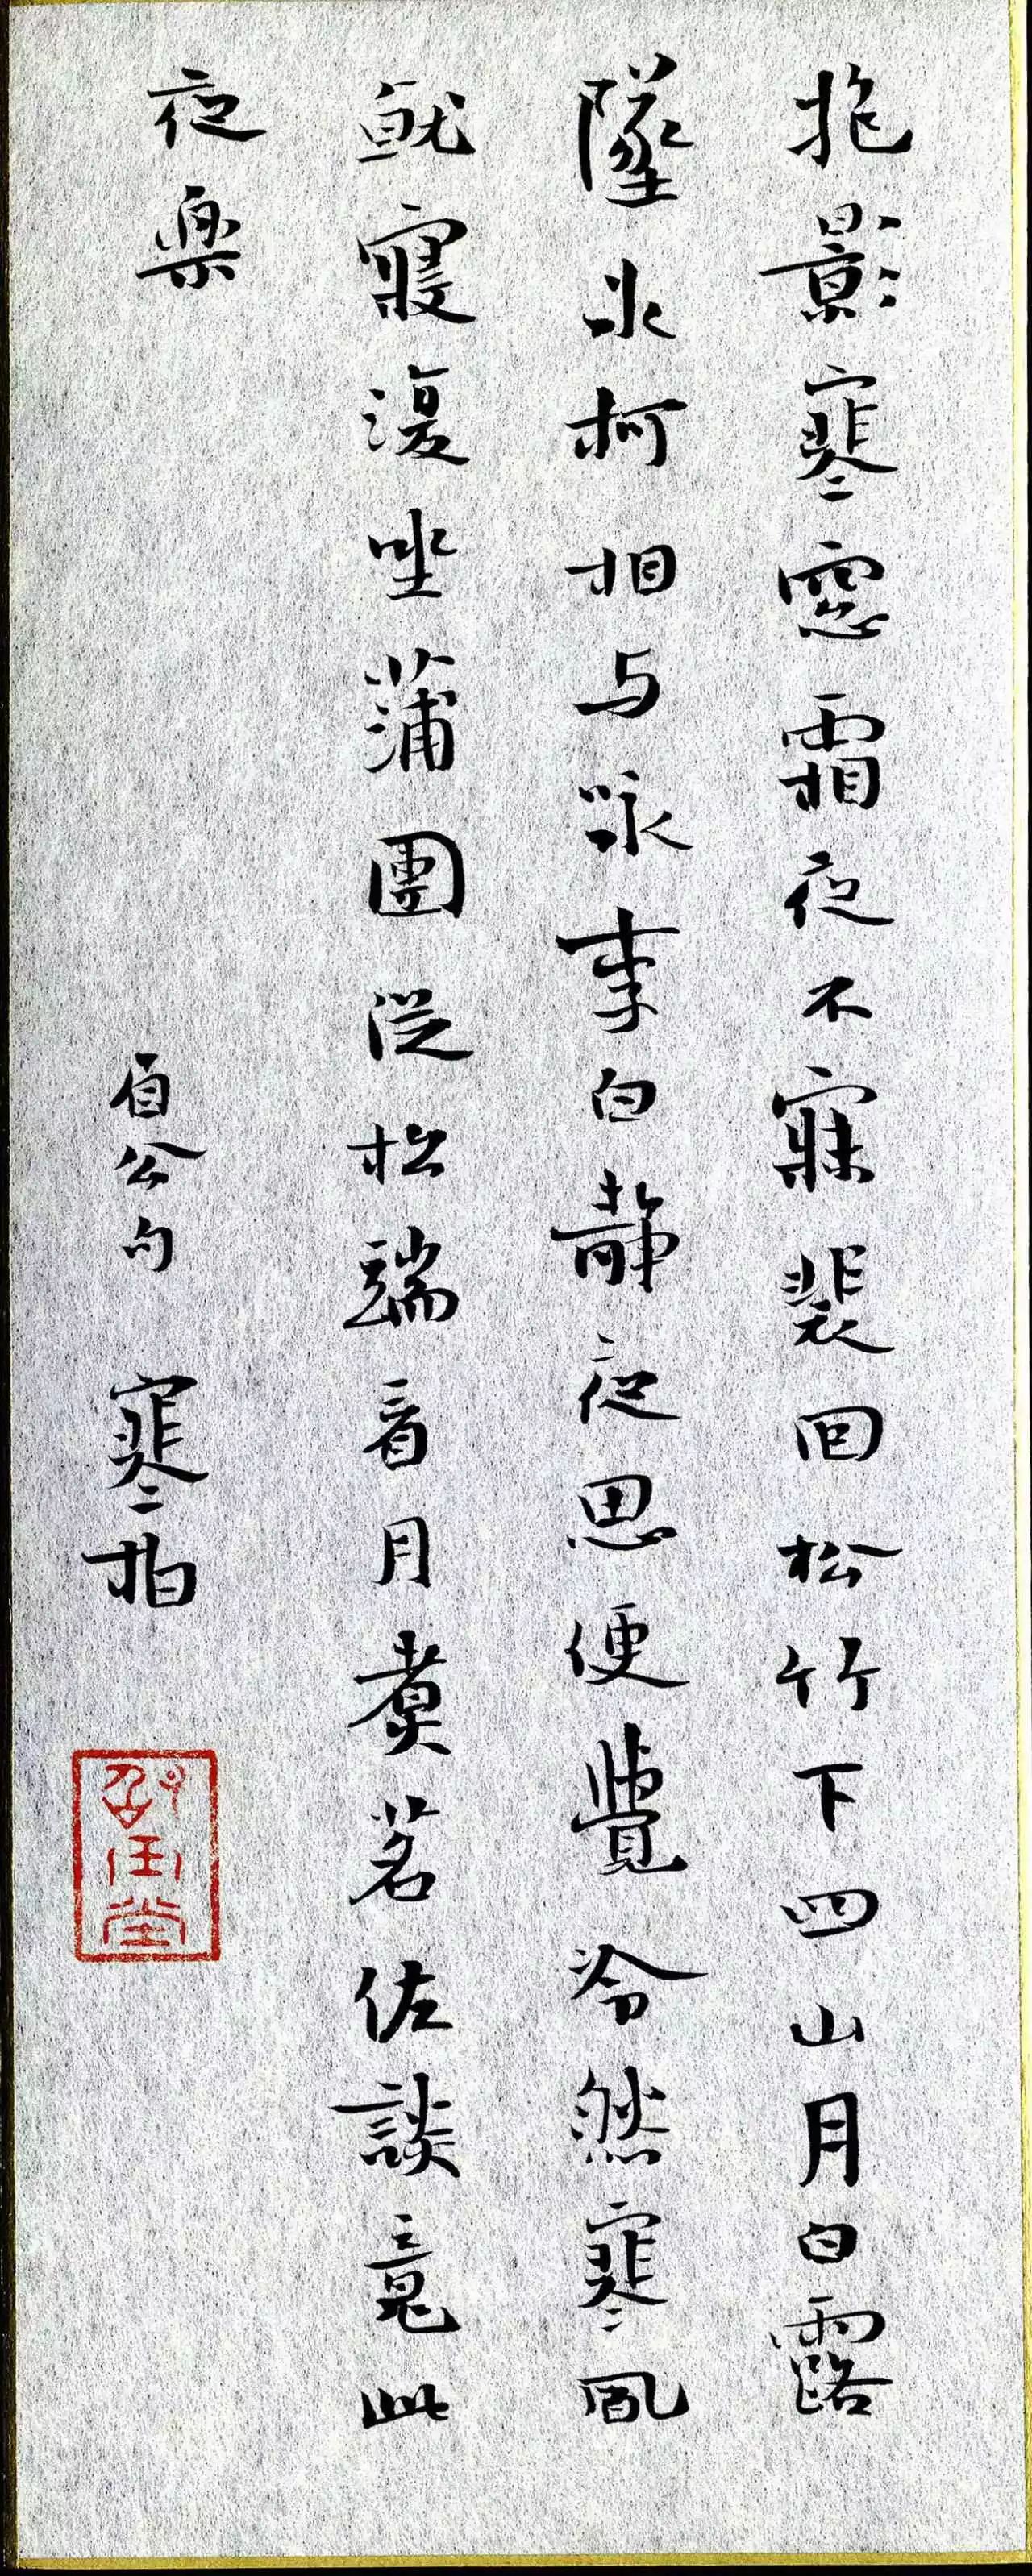 抱影寒窻霜夜不寐裴回松竹下四山月白露
墜冰柯相与咏李白静夜思便覺冷然寒風
就寢復坐蒲團從松端看月煑茗佐談竟此
夜樂
眉公句 寒柏